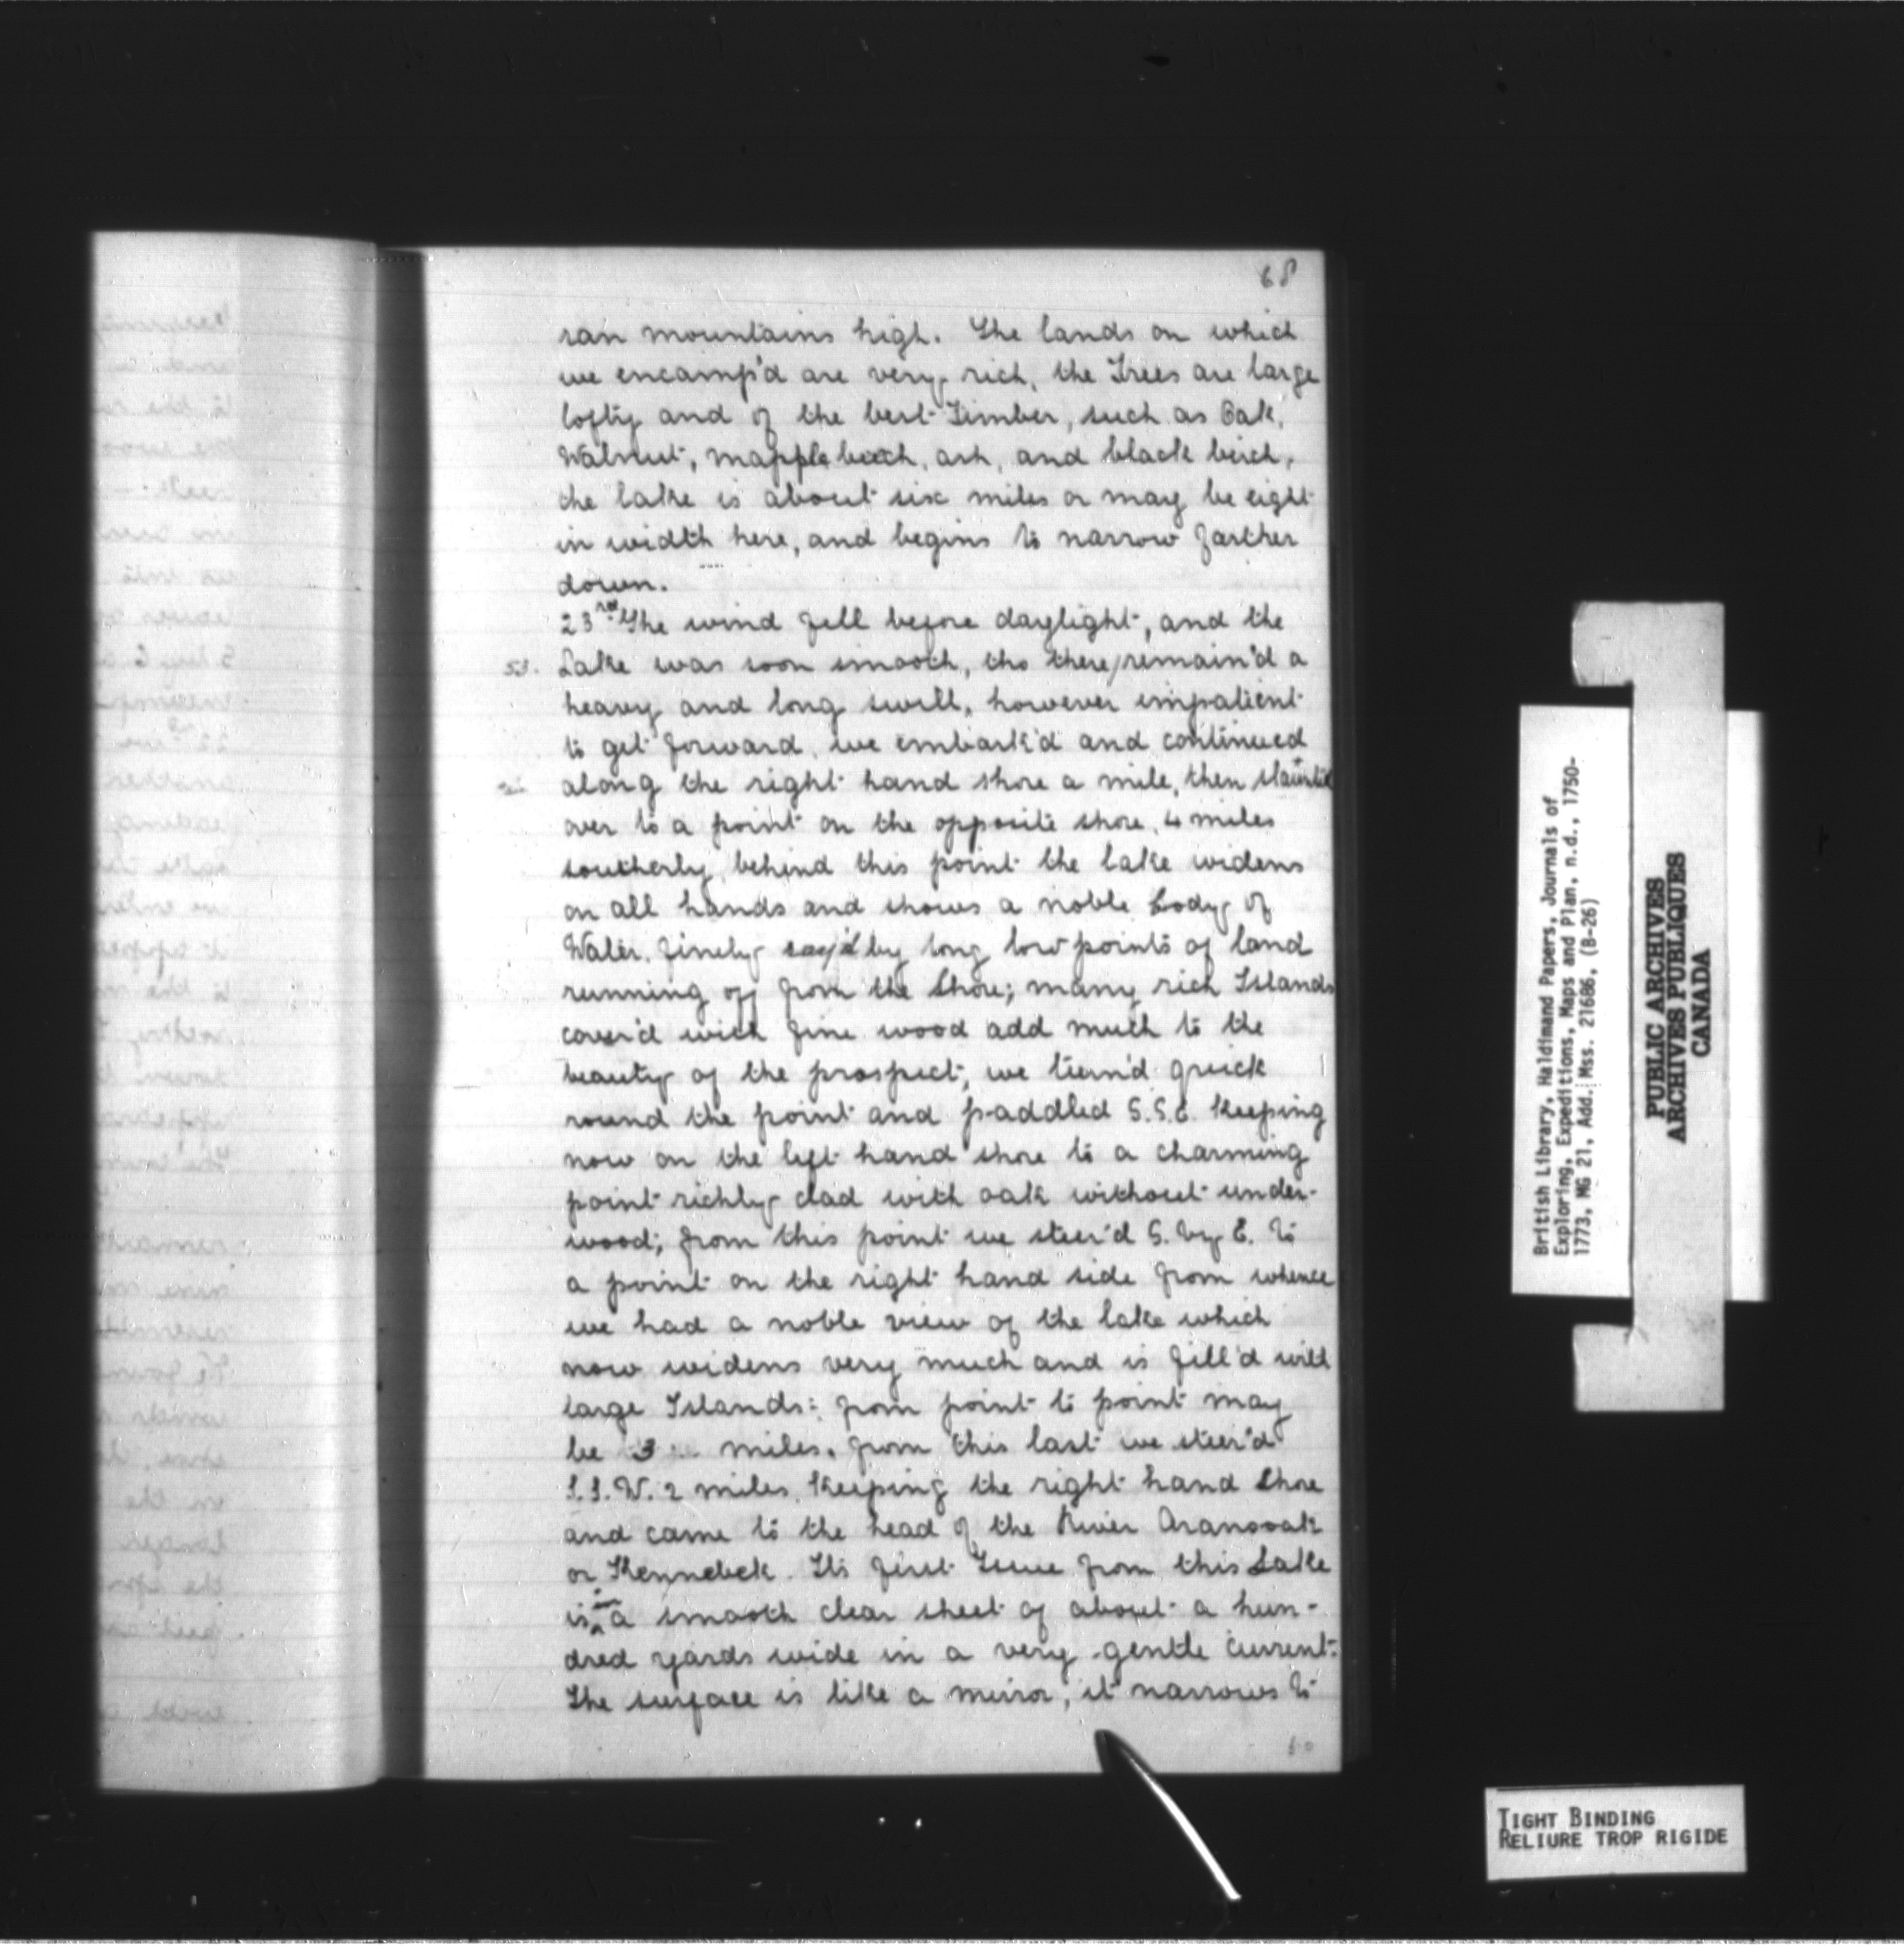 68
ran mountains high. The lands on which
we encamp'd are very rich, the Trees are large
lofty and of the best Timber, such as Oak,
Walnut, mapple beech, ash, and black birch,
the lake is about six miles or may be eight
in width here, and begins to narrow farther
down.
23rd The wind fell before daylight, and the
53. Lake was soon smooth, tho there remain'd a
heavy and long swell, however impatient
to get forward, we embark'd and continued
along the right hand shore a mile, then
over to a point on the opposite shore, 4 miles
southerly, behind this point the lake widens
on all hands and shows a noble body of
Water, finely by long low points of land
running off from the Shore; many rich Islands
cover'd with fine wood add much to the
beauty of the prospect, we turn'd quick
round the point and paddled S.S.E. keeping
now on the left hand shore to a charming
point richly clad with oak without under-
wood; from this point we steer'd S. by E. to
a point on the right hand side from whence
we had a noble view of the lake which
now widens very much and is fill'd with
large Islands: from point to point may
be 3 miles, from this last we steer'd
S.S.W. 2 miles, keeping the right hand Shore
and came to the head of the River Aransoak
or Kennebek. Its first Issue from this Lake
is in a smooth clear sheet of about a hun-
dred yards wide in a very gentle current.
The surface is like a mirror, it narrows to
British Library, Haldimand Papers, Journals of
Exploring, Expeditions, Maps and Plan, n.d., 1750-
1773, MG 21, Add. Mss. 21686, (B-26)
PUBLIC ARCHIVES
ARCHIVES PUBLIQUES
CANADA
TIGHT BINDING
RELIURE TROP RIGIDE